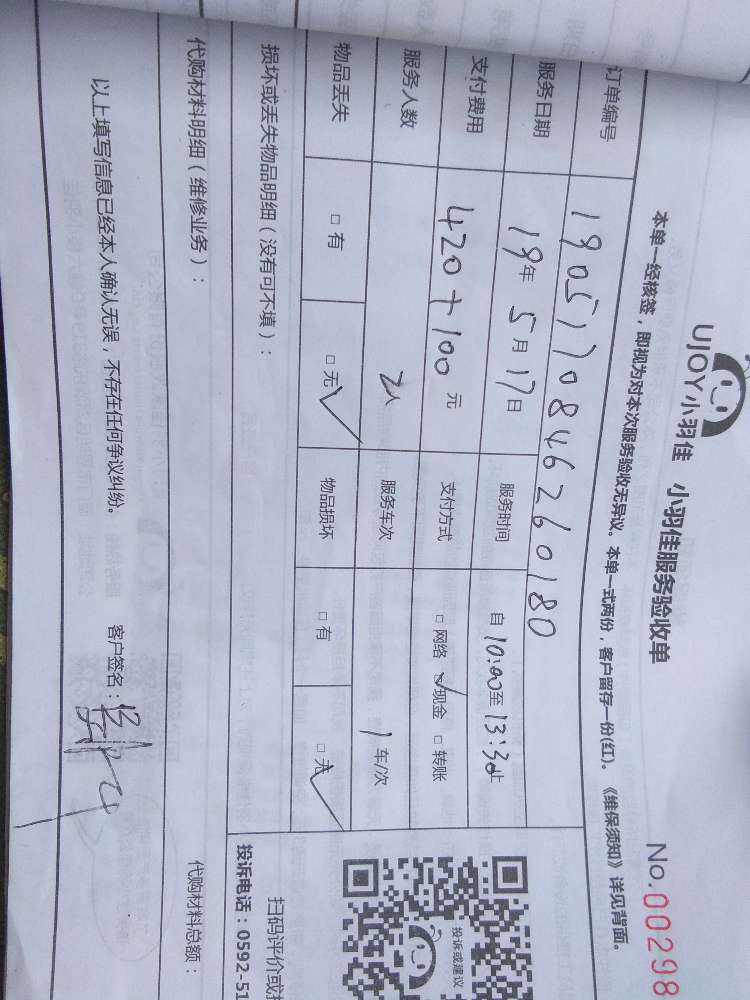 UJOY小羽佳 小羽佳服务验收单 No.00298
本单一经核签，即视为对本次服务验收无异议。本单一式两份，客户留存一份(红)。《维保须知》详见背面。
订单编号 1905170846260180
服务日期 19年 5月 17日 服务时间 自 10:00至 13:30止
支付费用 420+100 元 支付方式 □ 网络 ☑ 现金 □ 转账
服务人数 2人 服务车次 1 车/次
物品丢失 □ 有 □ 无 ✓ 物品损坏 □ 有 □ 无 ✓
损坏或丢失物品明细（没有可不填）：
代购材料明细（维修业务）： 代购材料总额：
以上填写信息已经本人确认无误，不存在任何争议纠纷。 客户签名：
投诉或建议
扫码评价或
投诉电话：0592-51